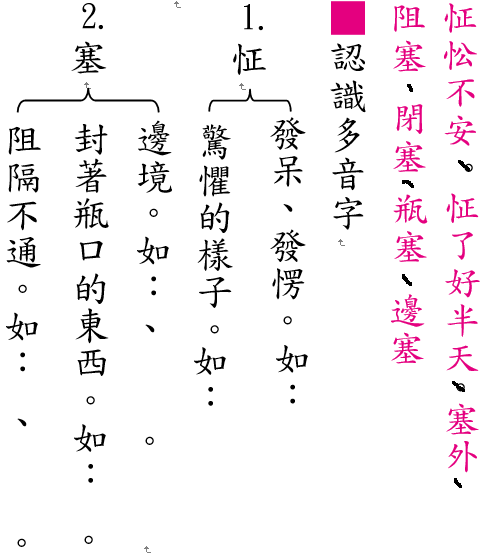 怔忪不安。怔了好半天。塞外、
阻塞、閉塞、瓶塞、邊塞
■認識多音字
1.怔
發呆、發愣。如：
驚懼的樣子。如：
2.塞
邊境。如：、。
封著瓶口的東西。如：。
阻隔不通。如：、。